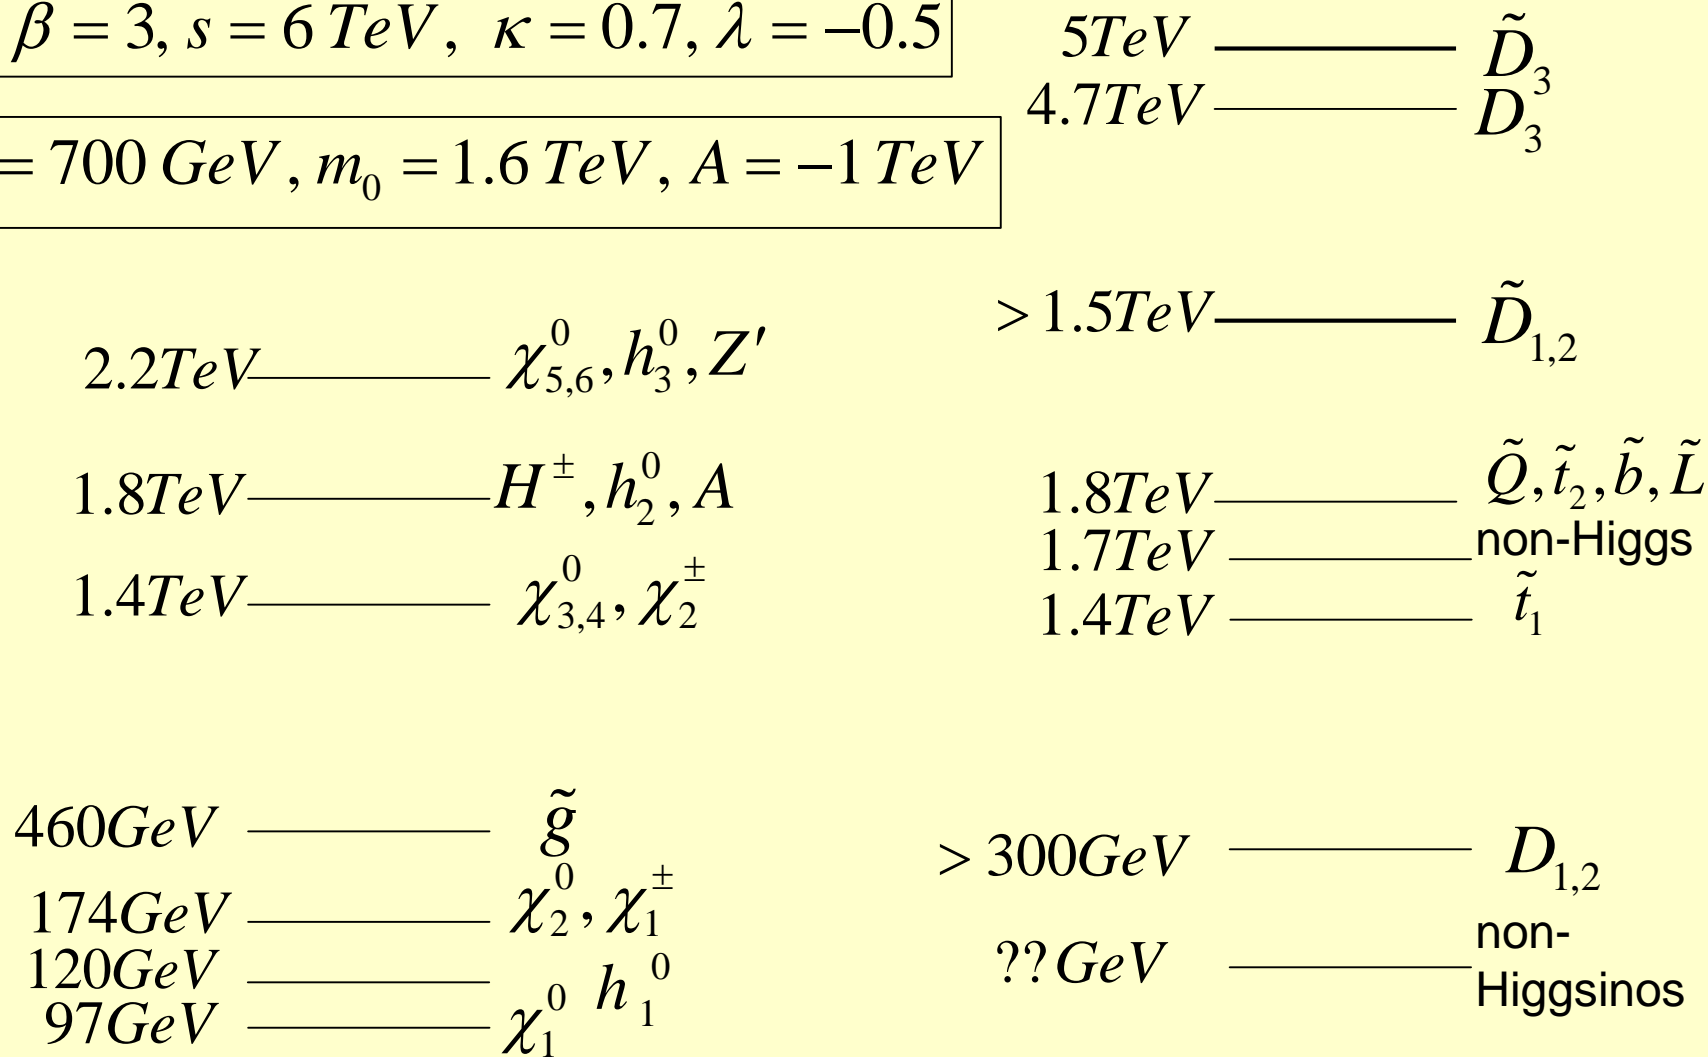 β = 3, s = 6 TeV, κ = 0.7, λ = −0.5
= 700 GeV, m₀ = 1.6 TeV, A = −1 TeV
2.2TeV χ⁰₅,₆, h⁰₃, Z′
1.8TeV H±, h⁰₂, A
1.4TeV χ⁰₃,₄, χ±₂
460GeV g̃
174GeV χ⁰₂, χ±₁
120GeV h₁⁰
97GeV χ⁰₁
5TeV D̃₃
4.7TeV D₃
> 1.5TeV D̃₁,₂
1.8TeV Q̃, t̃₂, b̃, L̃
1.7TeV non-Higgs
1.4TeV t̃₁
> 300GeV D₁,₂
?? GeV non-
Higgsinos